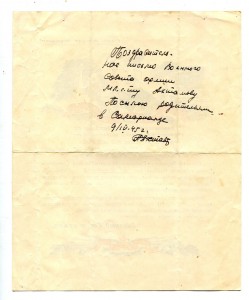 Поздравитель-
ное письмо Военного
Совета армии
мл. с-ту Асталову
Посылаю родителям
в Самарканде
9/IV.45 г.